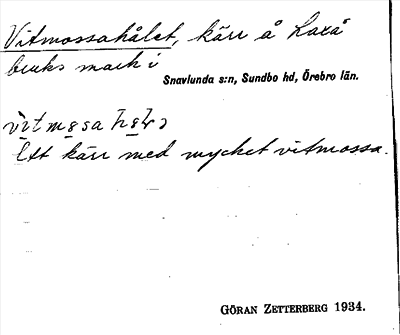 Vitmossahålet, kärr å Laxå
bruks mark i
Snavlunda s:n, Sundbo hd, Örebro län.
Ett kärr med mycket vitmossa.
GÖRAN ZETTERBERG 1934.